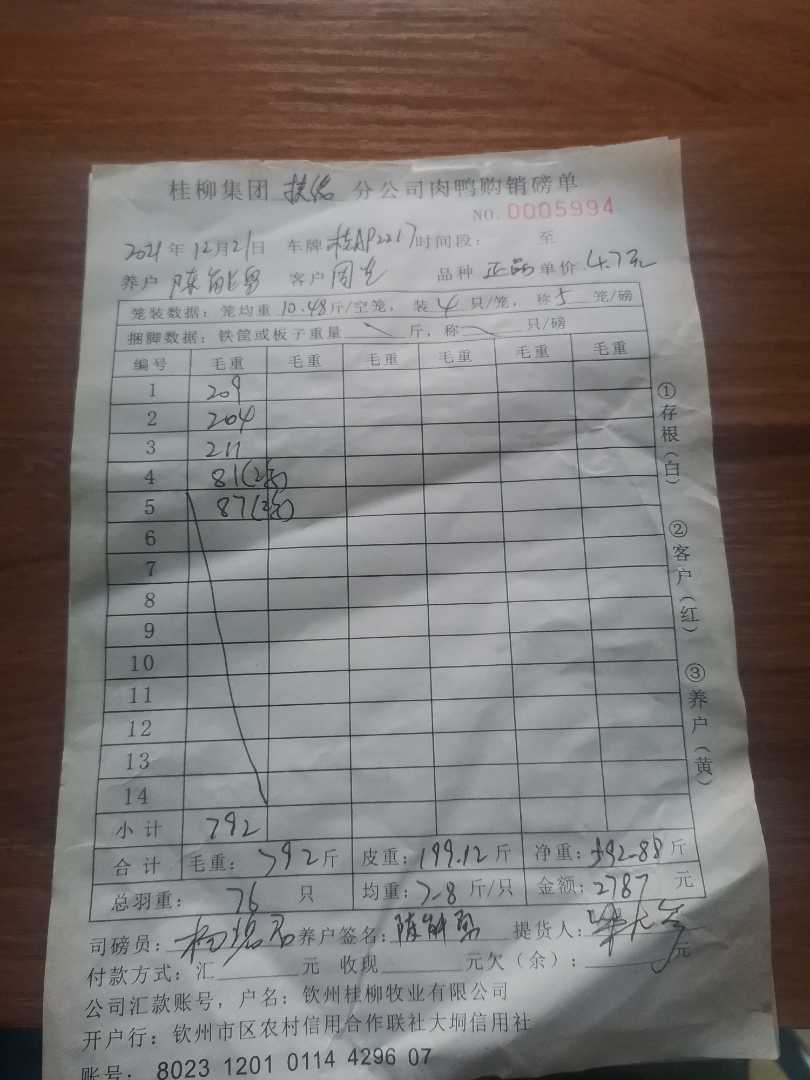 桂柳集团 扶绥 分公司肉鸭购销磅单
NO. 0005994
2021年12月21日 车牌桂AP2217时间段: 至
养户 陈能 客户 周 品种 正品 单价 4.7元
笼装数据: 笼均重 10.48斤/空笼, 装4只/笼, 称5笼/磅
捆脚数据: 铁筐或板子重量 斤, 称 只/磅
编号 毛重 毛重 毛重 毛重 毛重 毛重
1 209
2 204
3 211
4 81(2笼)
5 87(2笼)
6
7
8
9
10
11
12
13
14
小计 792
合计 毛重: 792斤 皮重: 199.12斤 净重: 592.88斤
总羽重: 76 只 均重: 7.8斤/只 金额: 2787元
司磅员: 杨 养户签名: 陈能 提货人:
付款方式: 汇 元 收现 元欠(余): 元
公司汇款账号, 户名: 钦州桂柳牧业有限公司
开户行: 钦州市区农村信用合作联社大垌信用社
账号: 8023 1201 0114 4296 07
①存根(白)
②客户(红)
③养户(黄)